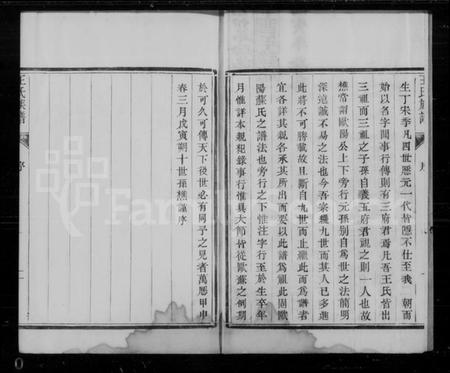 王氏族譜
序
生丁宋季凡四世歷元一代皆隱不仕至我 朝而
始以名字聞事行傳則有三府君焉凡吾王氏皆出
三祖而三祖之子孫自義五府君視之則一人也故
樵嘗謂歐陽公上下旁行元孫別自爲世之法簡明
深遠誠不易之法也今吾宗纔九世而其人已多進
此將不可勝載故自斯九世而止繼此而爲譜者
宜各詳其親各承其所出而要以此譜爲祖此固歐
陽蘇氏之譜法也旁行之下惟注字行至於生卒年
月惟詳本親犯錄事行惟具大節皆從歐蘇之例期
於可久可傳天下後世必有同予之見者萬曆甲申
春三月戊寅朔十世孫樵謹序
王氏族譜
序
一